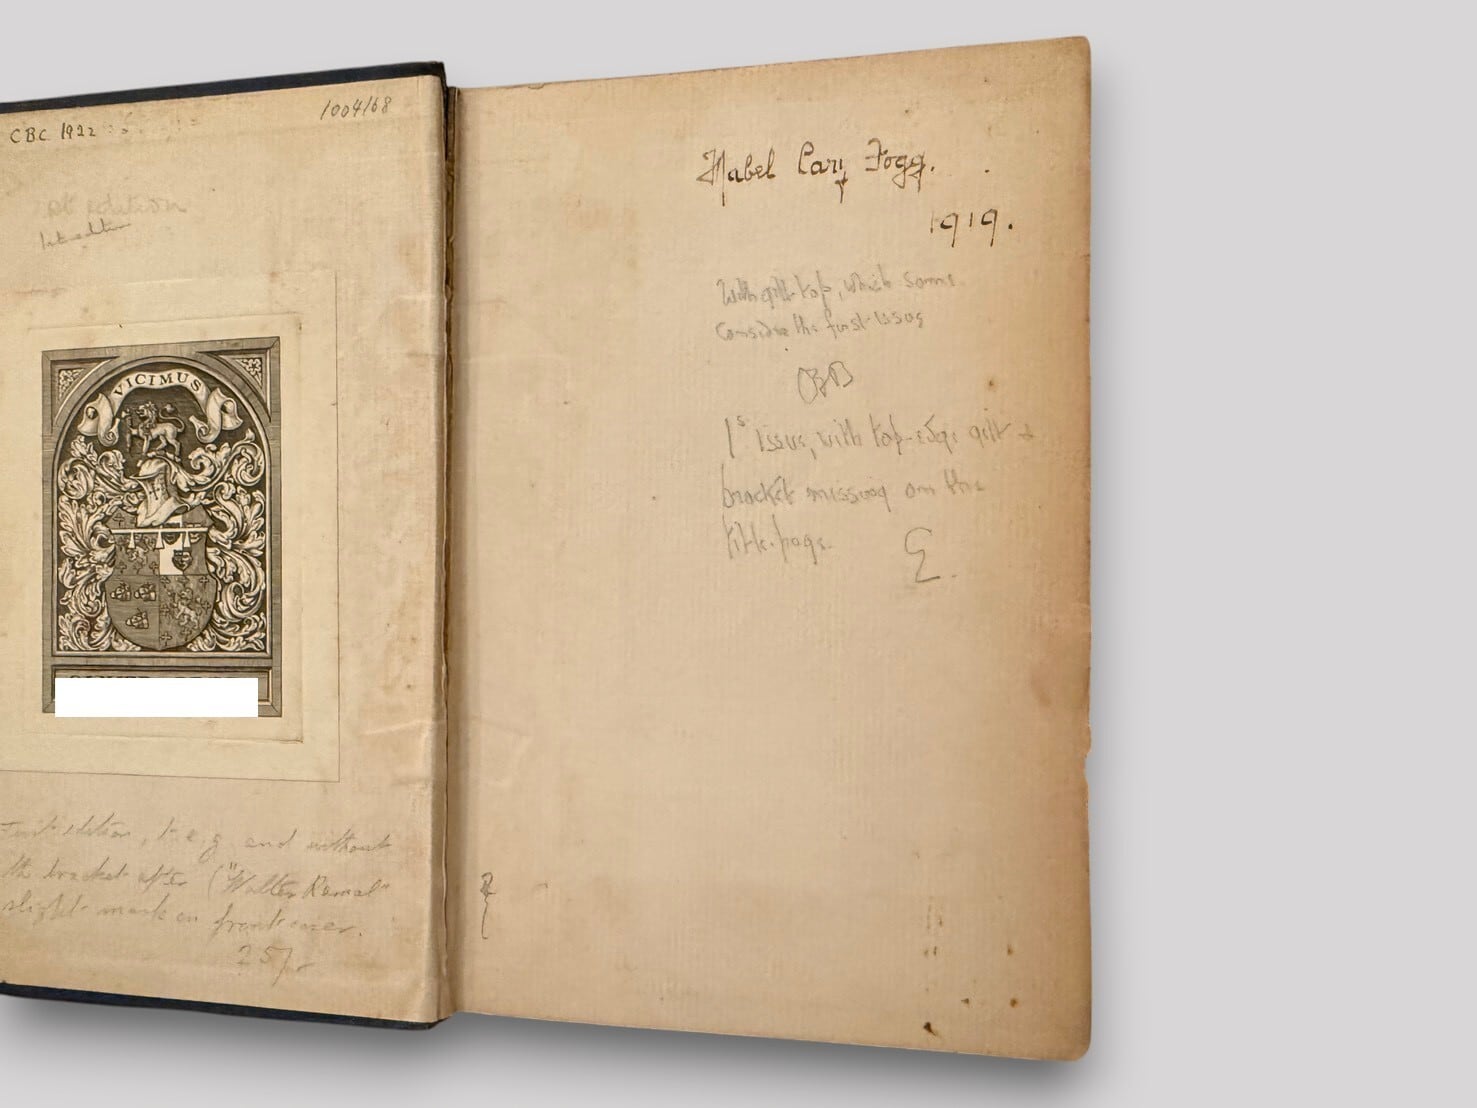 CBC 1922
1004/68
1st edition
1st edition
VICIMUS
First edition, t e g and without
the bracket after ("Walter Ramal"
slight mark on front cover.
25/-
Mabel Cary Fogg.
1919.
With gilt top, which some
consider the first issue
1st issue, with top-edge gilt &
bracket missing on the
title-page.
E.